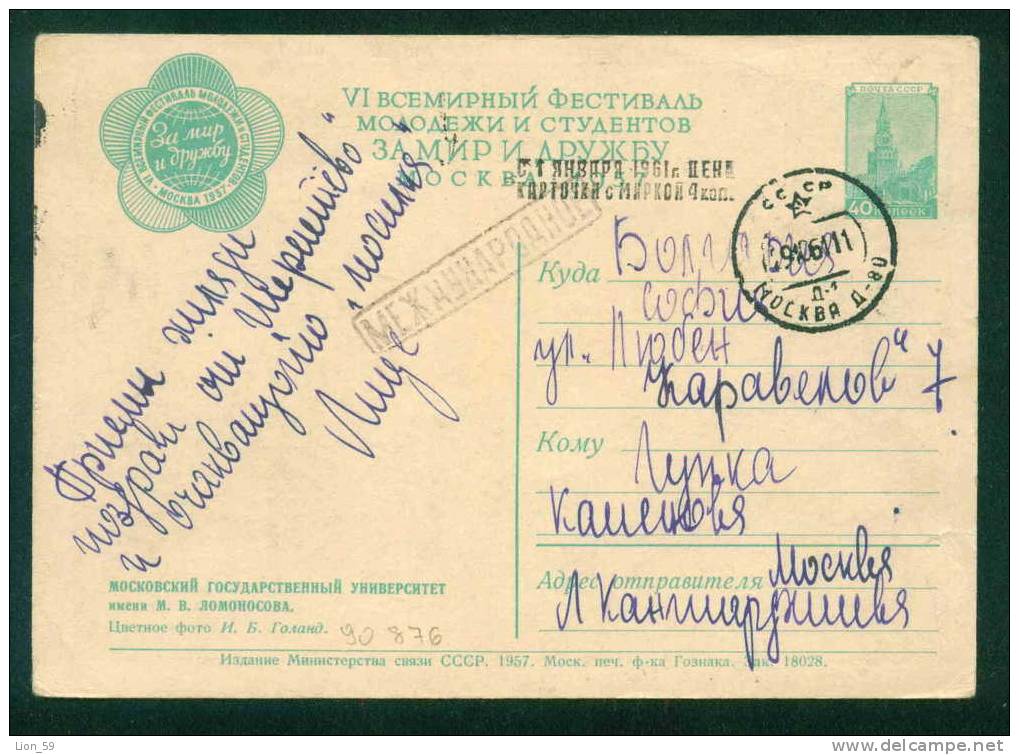 VI ВСЕМИРНЫЙ ФЕСТИВАЛЬ МОЛОДЕЖИ И СТУДЕНТОВ
За мир
и дружбу
МОСКВА 1957
VI ВСЕМИРНЫЙ ФЕСТИВАЛЬ
МОЛОДЕЖИ И СТУДЕНТОВ
ЗА МИР И ДРУЖБУ
МОСКВА
С 1 ЯНВАРЯ 1961г. ЦЕНА
КАРТОЧКИ с МАРКОЙ 4 коп.
ПОЧТА СССР
40 КОПЕЕК
СССР
61 11
Д-1
МОСКВА Д-80
МЕЖДУНАРОДНОЕ
Приеми хиляди
поздрави от "Шереметьево"
и очакващото "носиния"
Куда България
София
ул. "Любен
Каравелов" 7
Кому Гупка
Каменова
Адрес отправителя Москва
Л Кантарджиева
МОСКОВСКИЙ ГОСУДАРСТВЕННЫЙ УНИВЕРСИТЕТ
имени М. В. ЛОМОНОСОВА.
Цветное фото И. Б. Голанд. 90 876
Издание Министерства связи СССР. 1957. Моск. печ. ф-ка Гознака. Зак. 18028.
Lion_59
www.delcampe.net